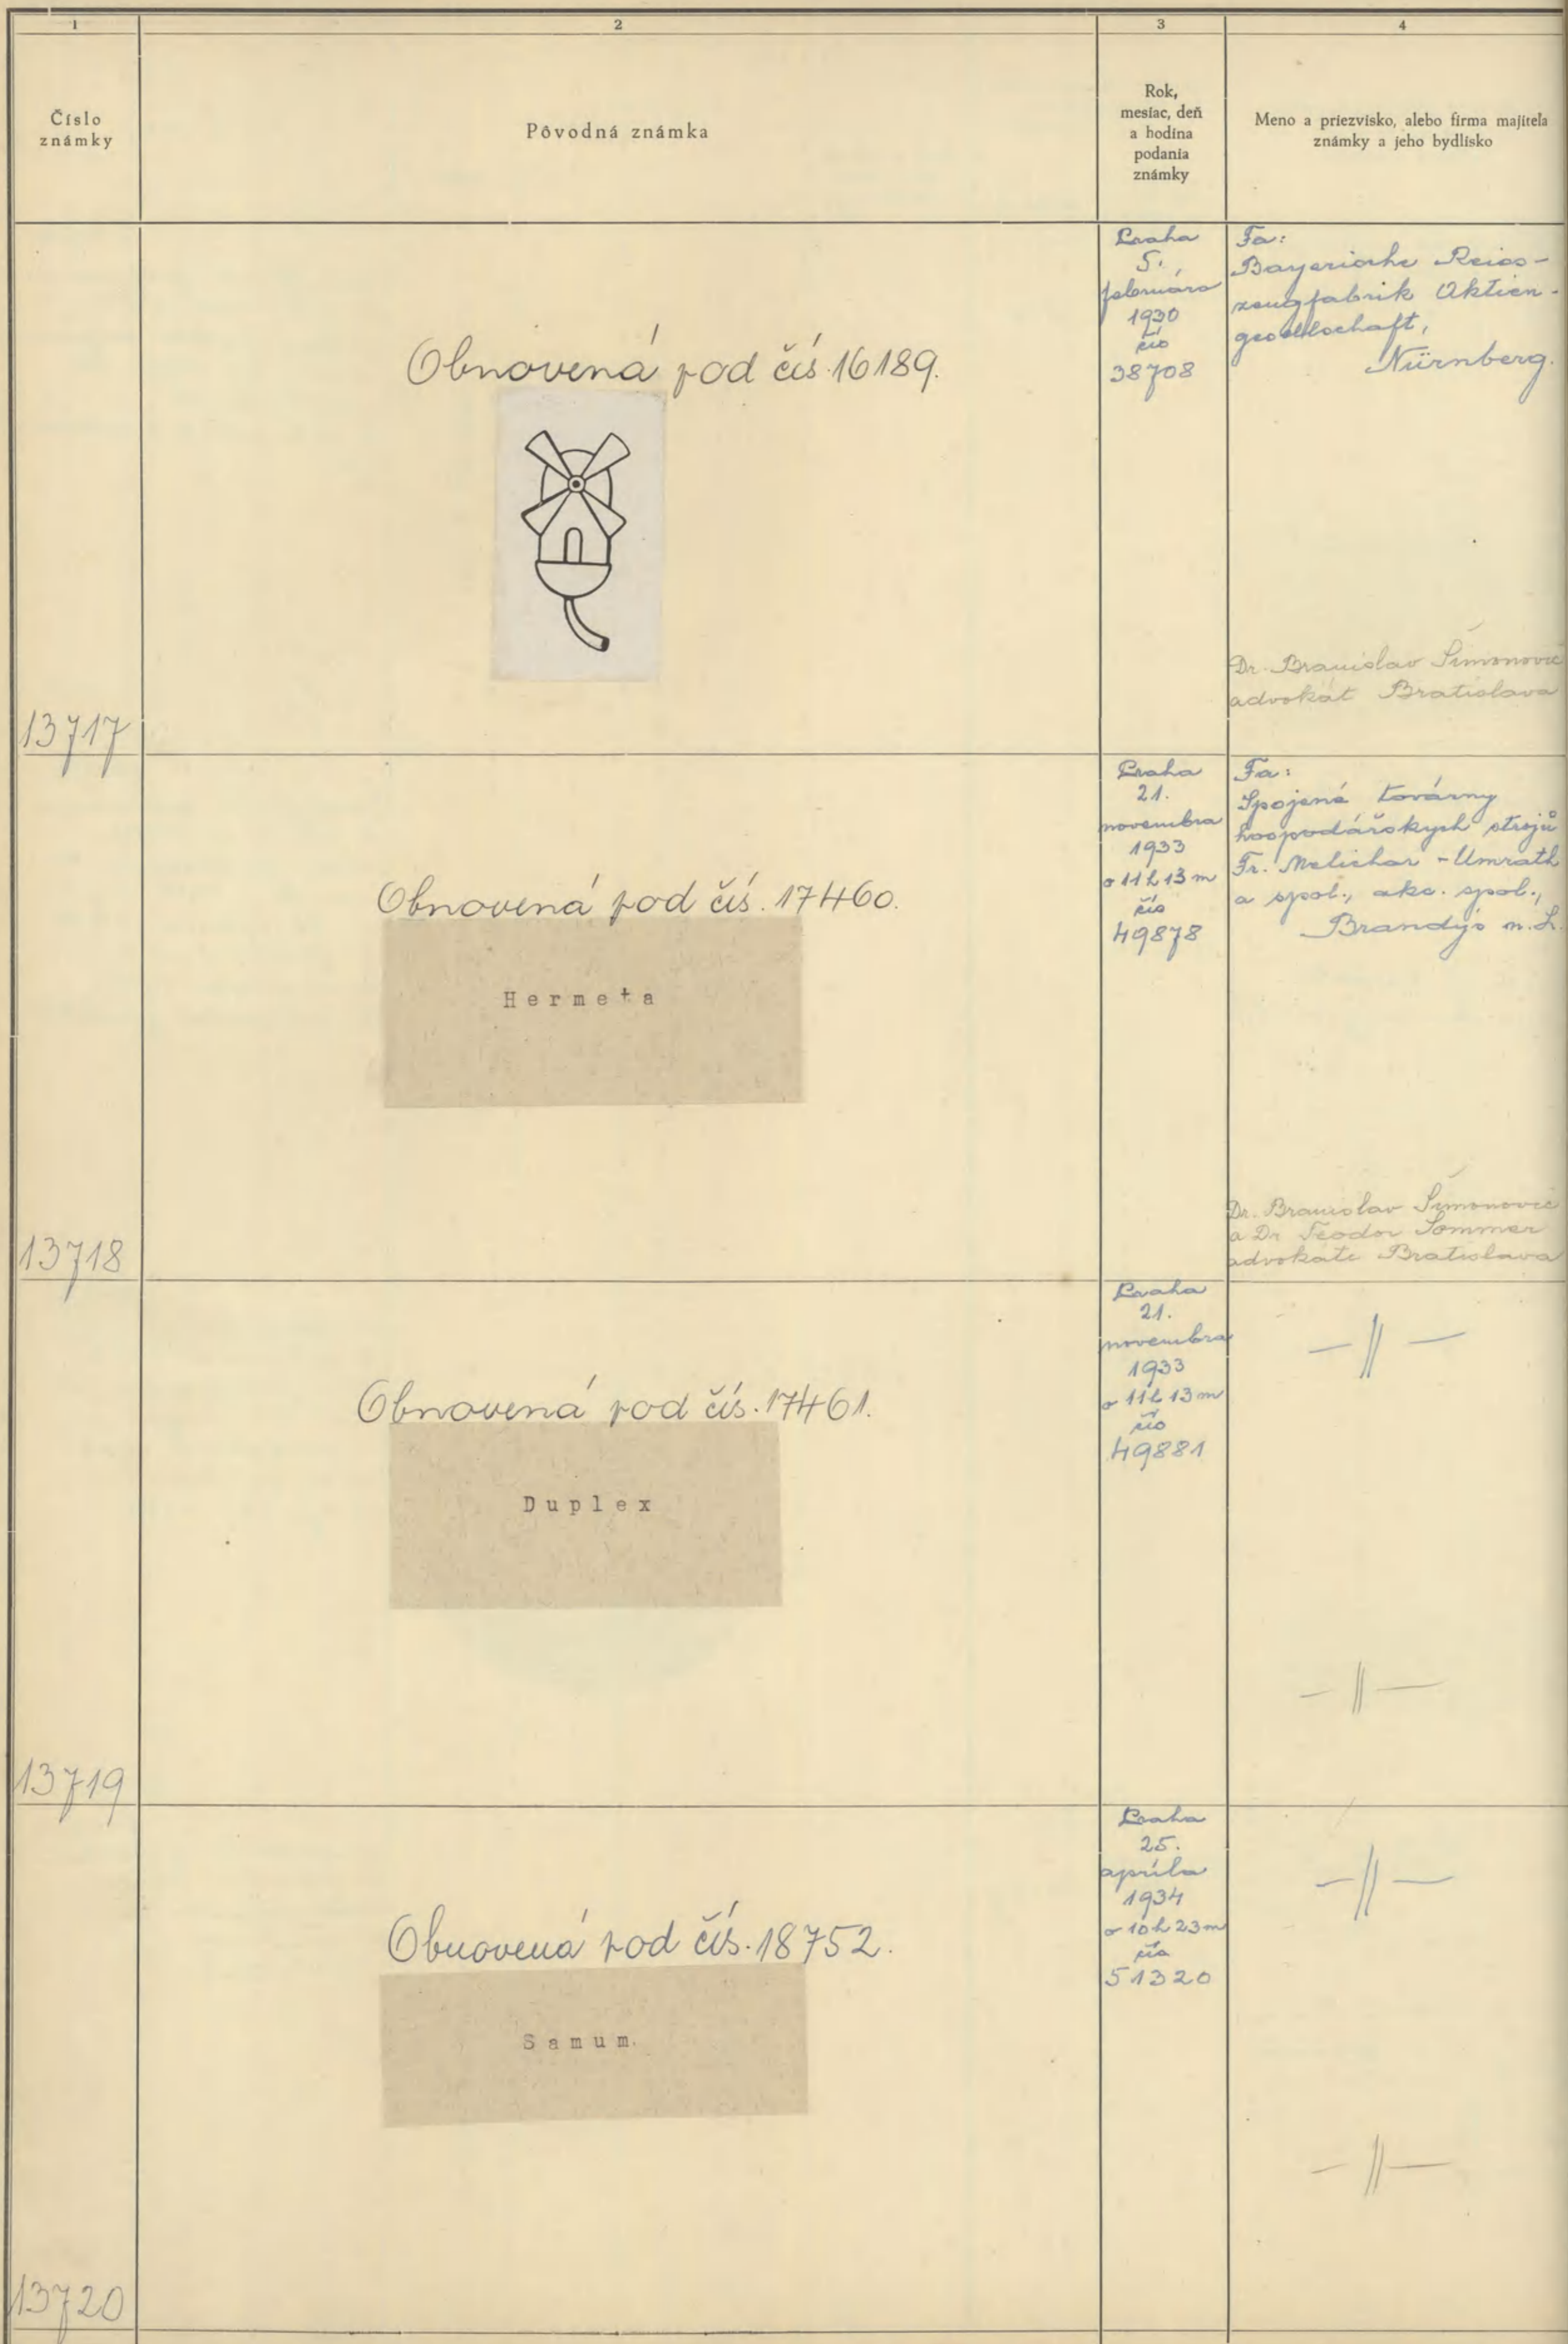 1
2
3
4
Číslo
známky
Pôvodná známka
Rok,
mesiac, deň
a hodina
podania
známky
Meno a priezvisko, alebo firma majitela
známky a jeho bydlisko
13717
Obnovená pod čís. 16189.
Praha
5.
februára
1930
čís
38708
Fa:
Bayerische Reiss-
zeugfabrik Aktien-
gesellschaft,
Nürnberg.
Dr. Branislav Šimonovič
advokát Bratislava
13718
Obnovená pod čís. 17460.
Hermeta
Praha
21.
novembra
1933
o 11 h 13 m
čís
49878
Fa:
Spojené továrny
hospodářských strojů
Fr. Melichar - Umrath
a spol., akc. spol.,
Brandýs n. L.
Dr. Branislav Šimonovič
a Dr Teodor Sommer
advokáti Bratislava
13719
Obnovená pod čís. 17461.
Duplex
Praha
21.
novembra
1933
o 11 h 13 m
čís
49881
— || —
— || —
13720
Obnovená pod čís. 18752.
Samum.
Praha
25.
apríla
1934
o 10 h 23 m
čís
51320
— || —
— || —